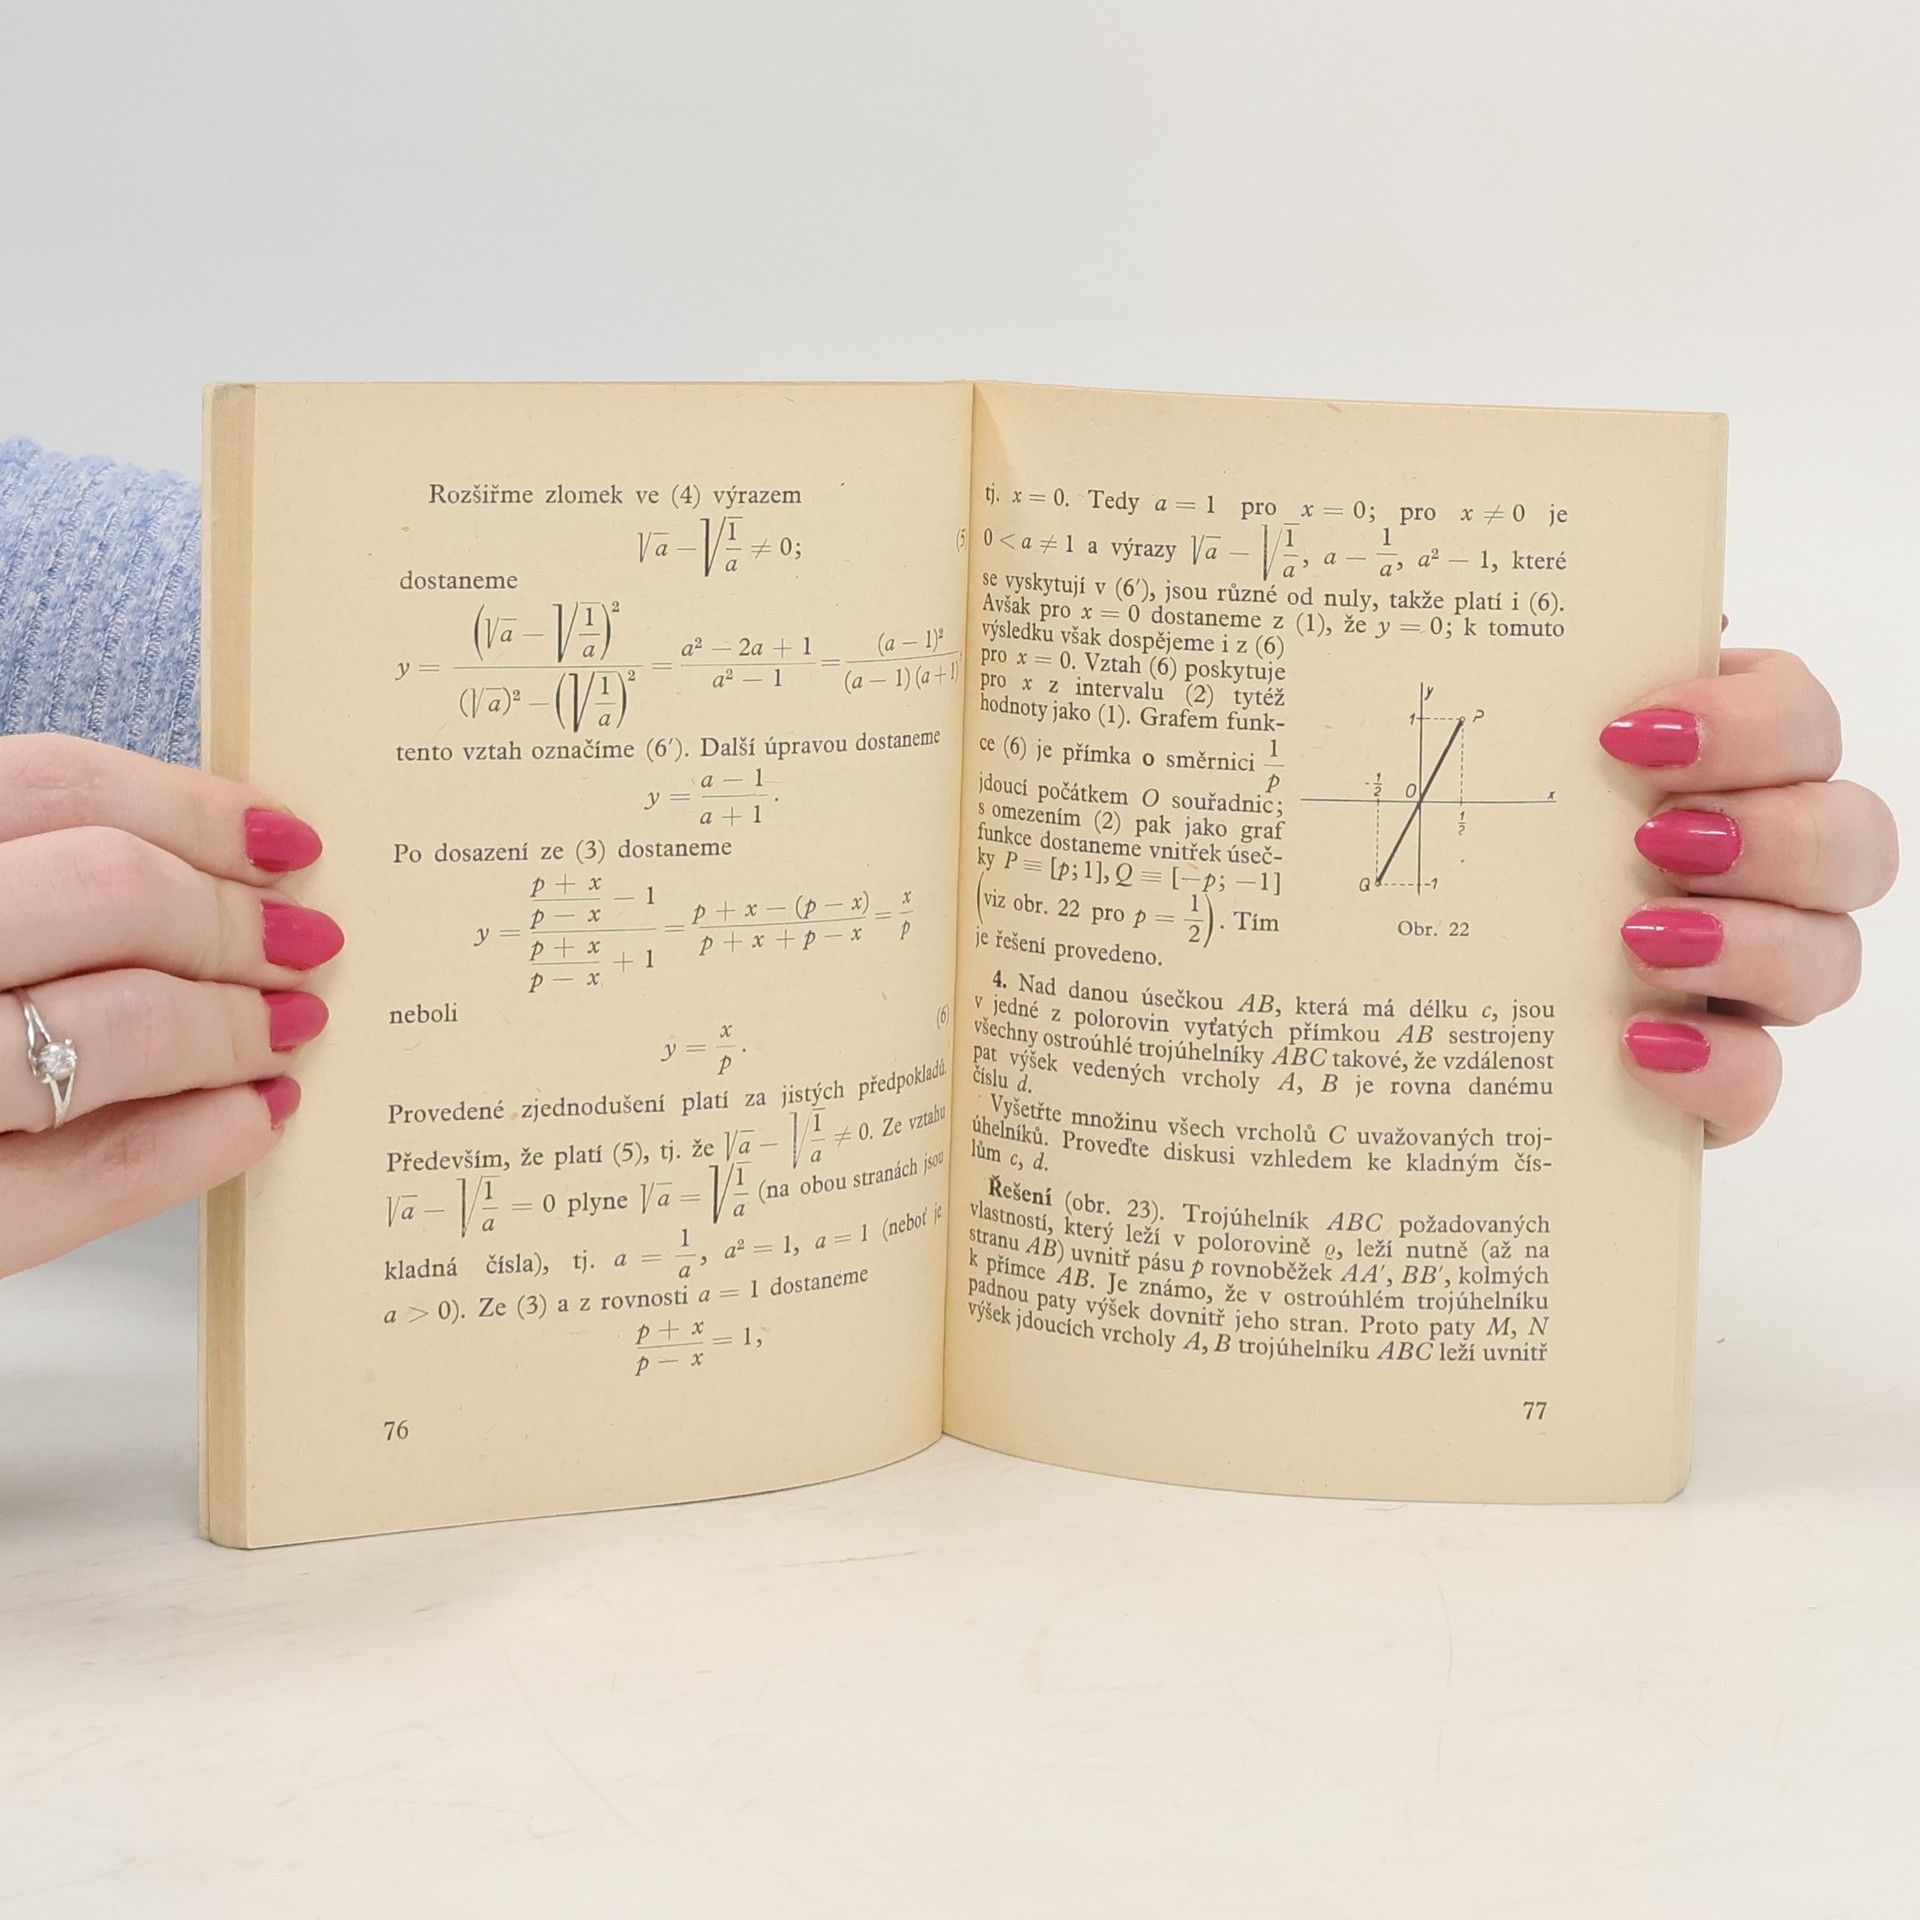 Rozšiřme zlomek ve (4) výrazem
√a − √(1/a) ≠ 0; (5)
dostaneme
y = (√a − √(1/a))² / ((√a)² − (√(1/a))²) = (a² − 2a + 1)/(a² − 1) = (a − 1)²/((a − 1)(a + 1))
tento vztah označíme (6′). Další úpravou dostaneme
y = (a − 1)/(a + 1).
Po dosazení ze (3) dostaneme
y = ((p + x)/(p − x) − 1)/((p + x)/(p − x) + 1) = (p + x − (p − x))/(p + x + p − x) = x/p
neboli
y = x/p. (6)
Provedené zjednodušení platí za jistých předpokladů.
Především, že platí (5), tj. že √a − √(1/a) ≠ 0. Ze vztahu
√a − √(1/a) = 0 plyne √a = √(1/a) (na obou stranách jsou
kladná čísla), tj. a = 1/a, a² = 1, a = 1 (neboť je
a > 0). Ze (3) a z rovnosti a = 1 dostaneme
(p + x)/(p − x) = 1,
76
tj. x = 0. Tedy a = 1 pro x = 0; pro x ≠ 0 je
0 < a ≠ 1 a výrazy √a − √(1/a), a − 1/a, a² − 1, které
se vyskytují v (6′), jsou různé od nuly, takže platí i (6).
Avšak pro x = 0 dostaneme z (1), že y = 0; k tomuto
výsledku však dospějeme i z (6)
pro x = 0. Vztah (6) poskytuje
pro x z intervalu (2) tytéž
hodnoty jako (1). Grafem funk-
ce (6) je přímka o směrnici 1/p
jdoucí počátkem O souřadnic;
s omezením (2) pak jako graf
funkce dostaneme vnitřek úseč-
ky P ≡ [p; 1], Q ≡ [−p; −1]
(viz obr. 22 pro p = 1/2). Tím
je řešení provedeno.
y
1 P
-1/2 O x
1/2
Q -1
Obr. 22
4. Nad danou úsečkou AB, která má délku c, jsou
v jedné z polorovin vyťatých přímkou AB sestrojeny
všechny ostroúhlé trojúhelníky ABC takové, že vzdálenost
pat výšek vedených vrcholy A, B je rovna danému
číslu d.
Vyšetřte množinu všech vrcholů C uvažovaných troj-
úhelníků. Proveďte diskusi vzhledem ke kladným čís-
lům c, d.
Řešení (obr. 23). Trojúhelník ABC požadovaných
vlastností, který leží v polorovině ϱ, leží nutně (až na
stranu AB) uvnitř pásu p rovnoběžek AA′, BB′, kolmých
k přímce AB. Je známo, že v ostroúhlém trojúhelníku
padnou paty výšek dovnitř jeho stran. Proto paty M, N
výšek jdoucích vrcholy A, B trojúhelníku ABC leží uvnitř
77